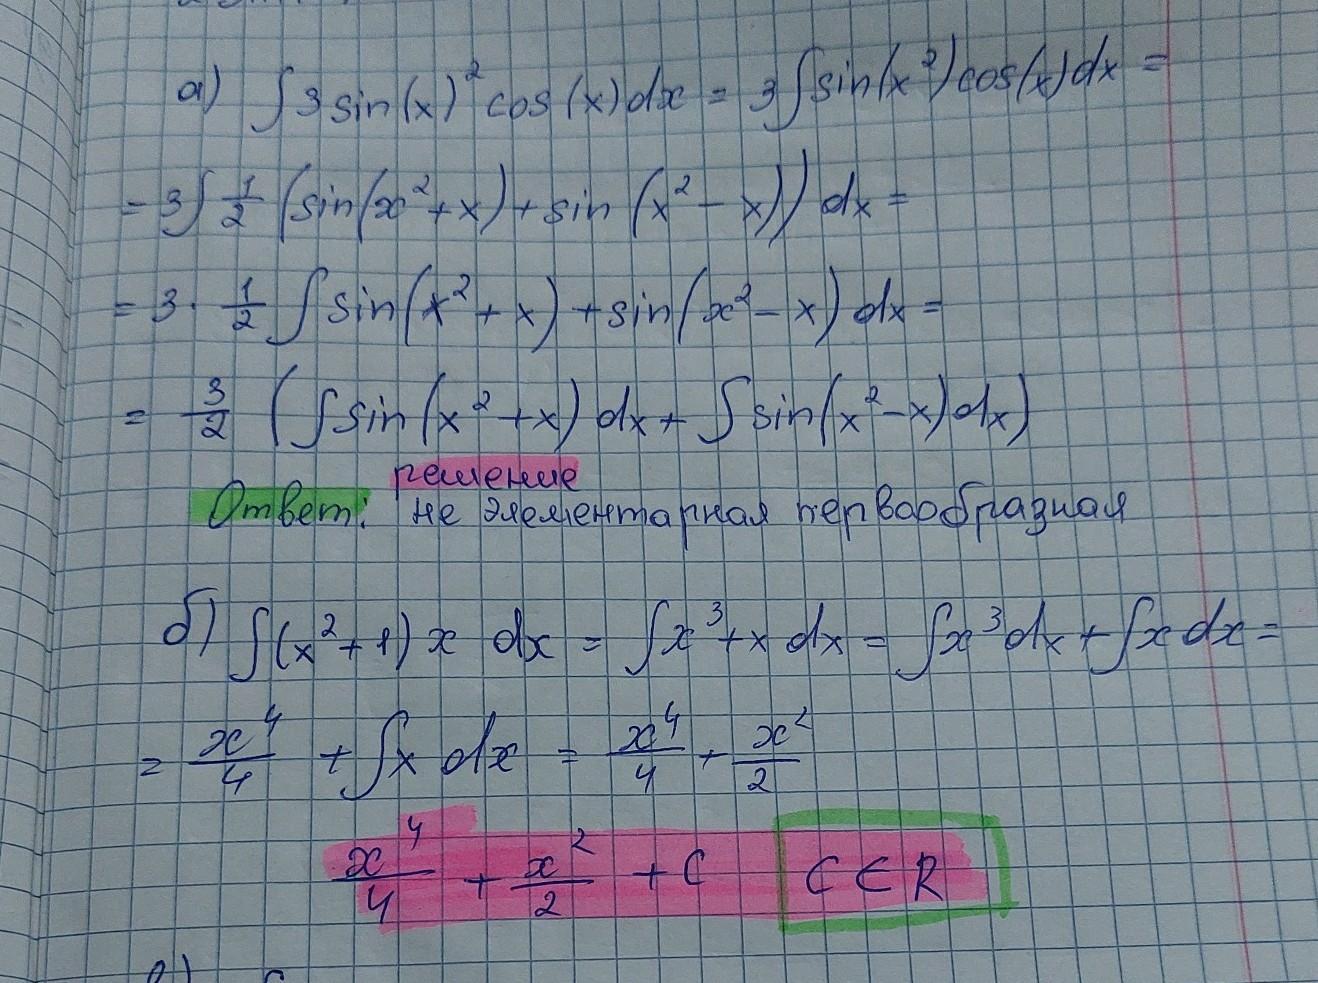 а) ∫3 sin(x)² cos(x)dx = 3∫sin(x²)cos(x)dx =
= 3∫ 1/2 (sin(x²+x)+sin(x²-x)) dx =
= 3 · 1/2 ∫ sin(x²+x)+sin(x²-x) dx =
= 3/2 (∫sin(x²+x) dx + ∫sin(x²-x)dx)
решение
Ответ: не элементарная первообразная
б) ∫(x²+1) x dx = ∫x³+x dx = ∫x³dx+∫x dx =
= x⁴/4 + ∫x dx = x⁴/4 + x²/2
x⁴/4 + x²/2 + C C ∈ R